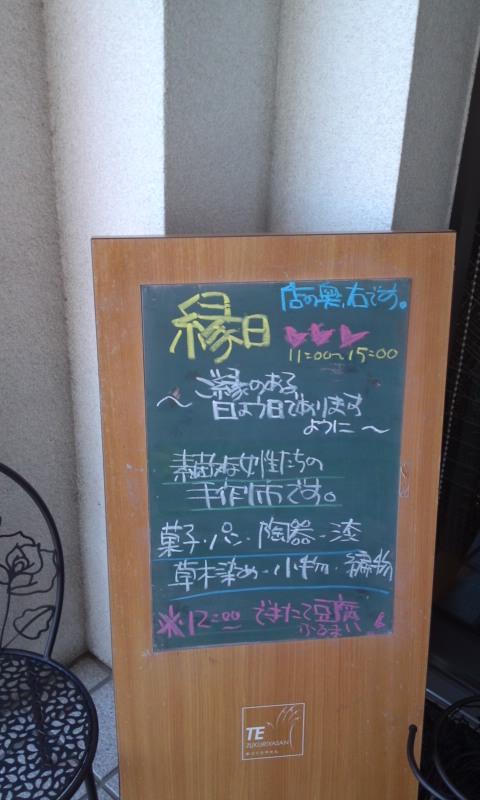 店の奥、右です。
縁日
11:00~15:00
~ ご縁のある
日よう日でありますように ~
素敵な女性たちの
手作り市です。
菓子・パン・陶器・漆
草木染め・小物・編物
※12:00 できたて豆腐
ふるまい
TE
ZUKURIYASAN